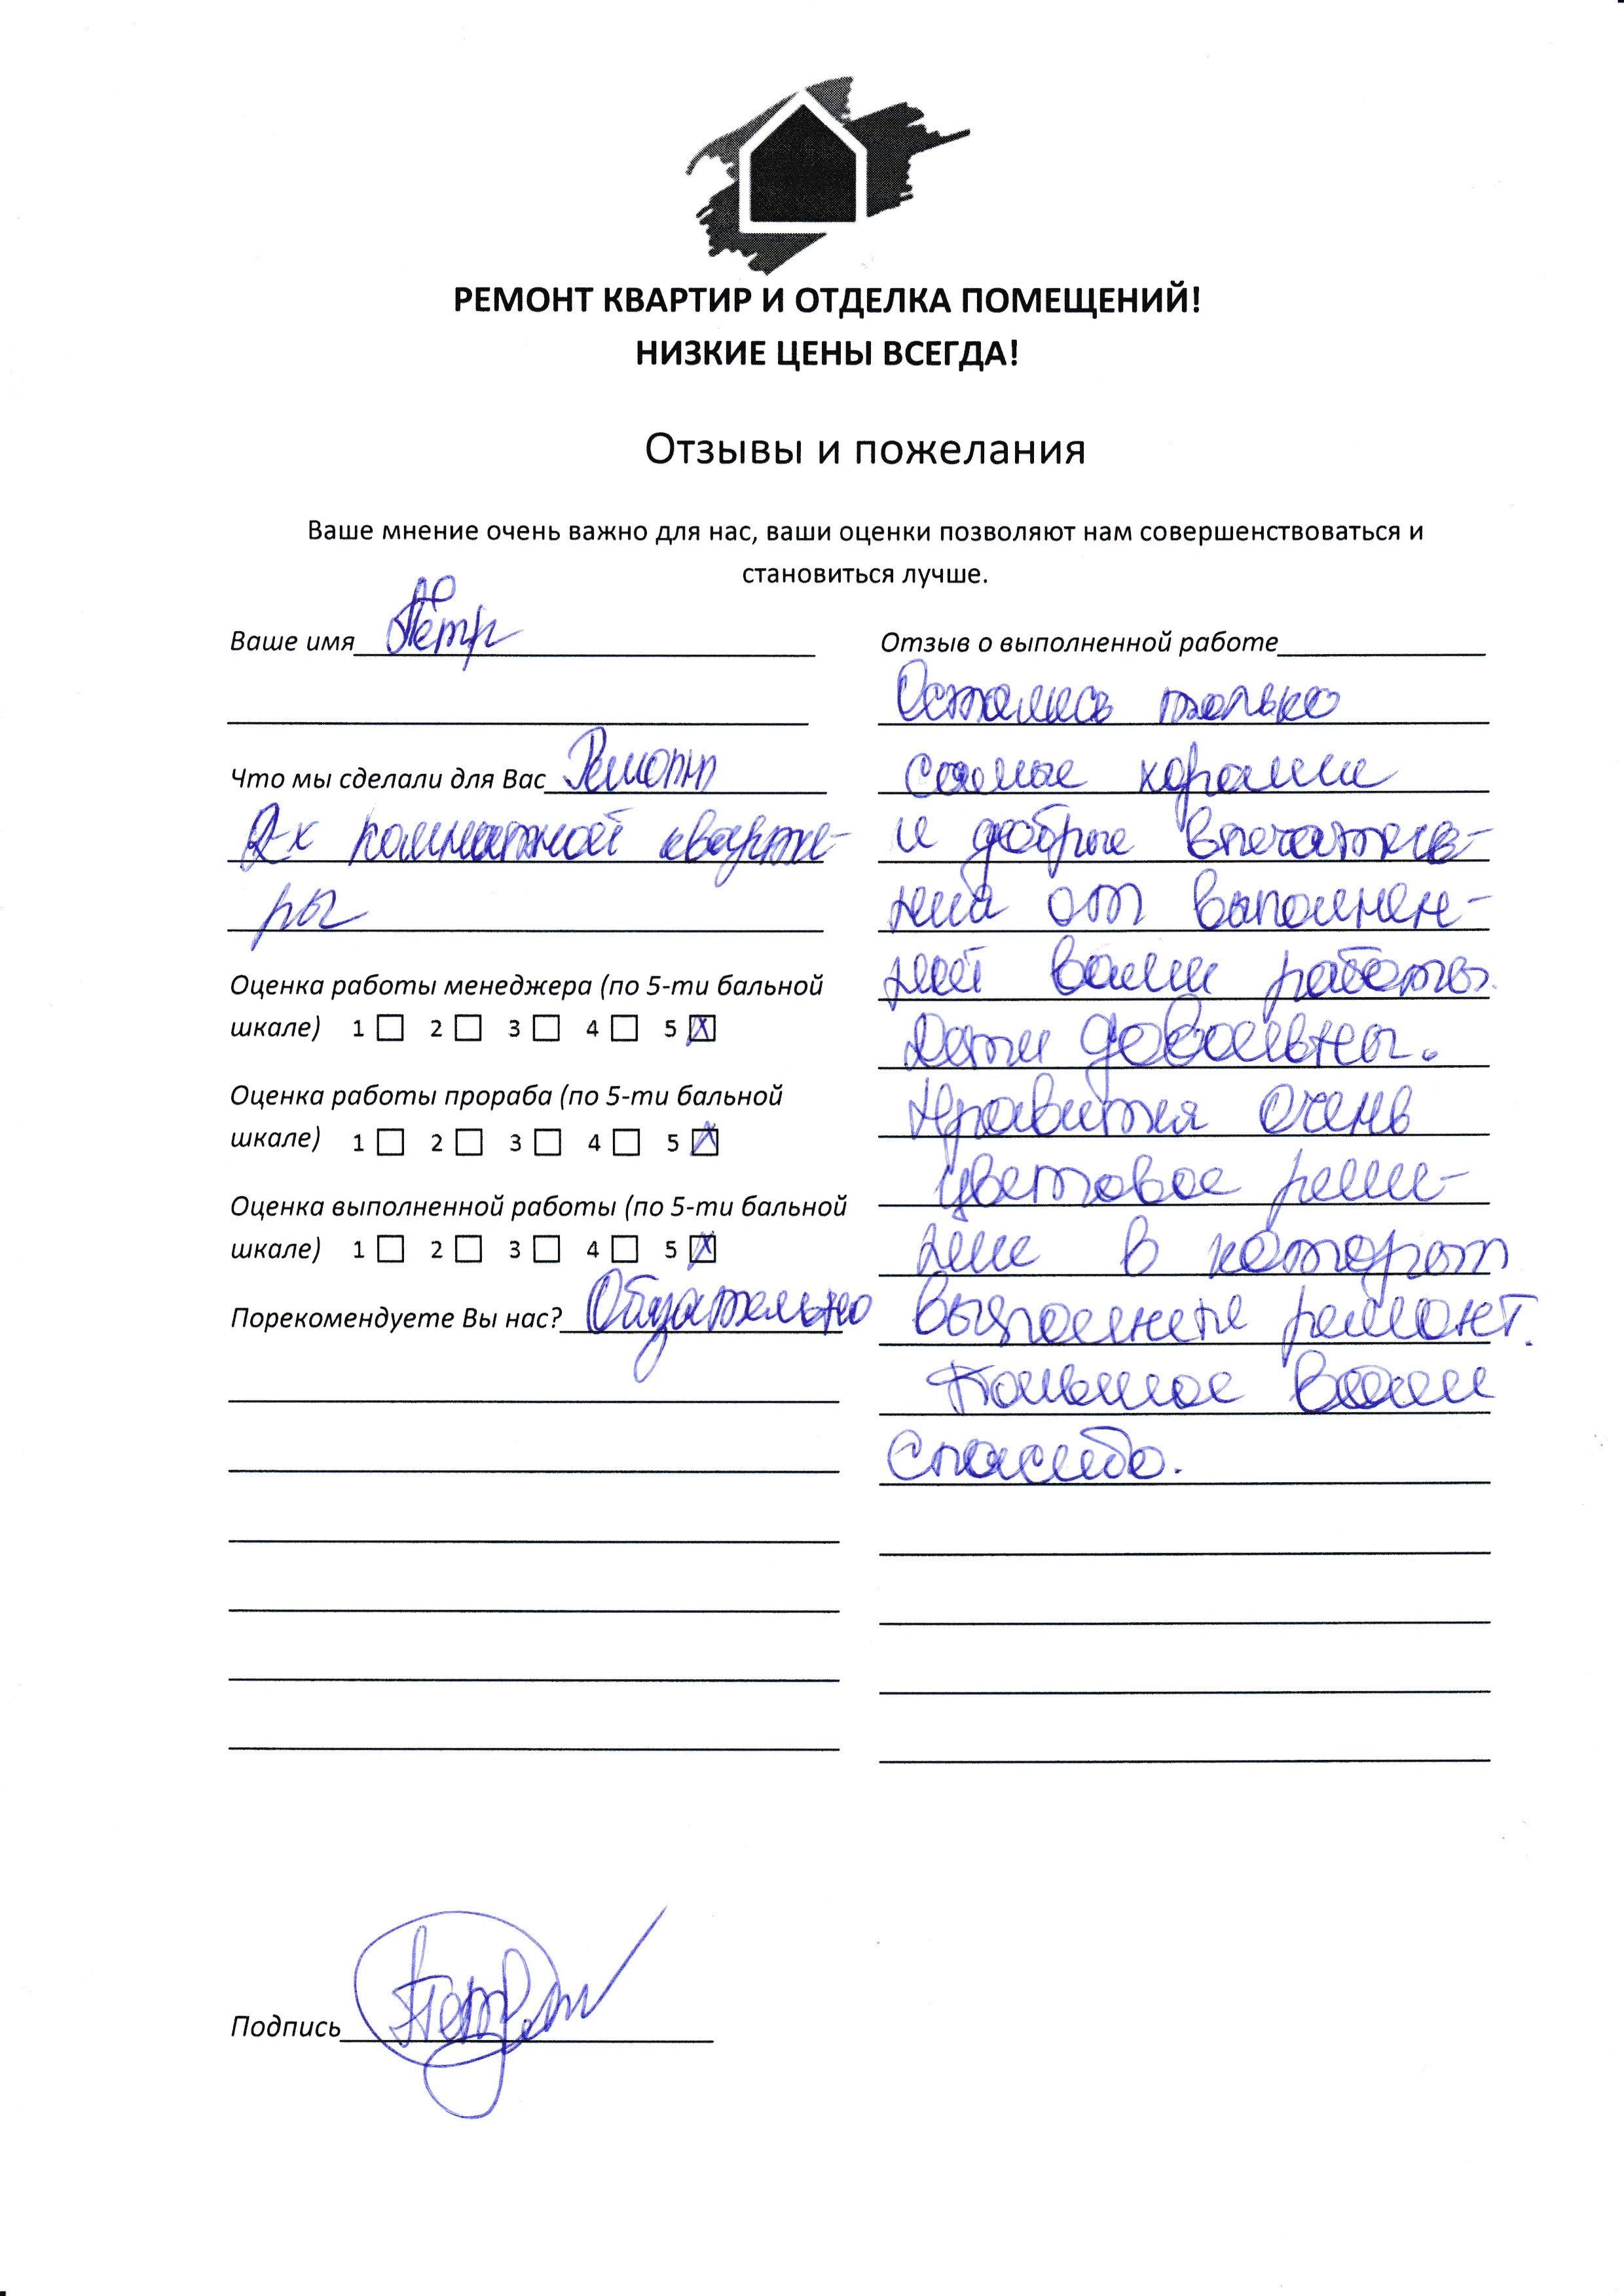 РЕМОНТ КВАРТИР И ОТДЕЛКА ПОМЕЩЕНИЙ!
НИЗКИЕ ЦЕНЫ ВСЕГДА!
Отзывы и пожелания
Ваше мнение очень важно для нас, ваши оценки позволяют нам совершенствоваться и
становиться лучше.
Ваше имя Пётр
Что мы сделали для Вас Ремонт
2-х комнатной кварти-
ры
Оценка работы менеджера (по 5-ти бальной
шкале) 1 2 3 4 5 X
Оценка работы прораба (по 5-ти бальной
шкале) 1 2 3 4 5 X
Оценка выполненной работы (по 5-ти бальной
шкале) 1 2 3 4 5 X
Порекомендуете Вы нас? Обязательно
Отзыв о выполненной работе
Остались только
самые хорошие
и добрые впечатле-
ния от выполнен-
ной вами работы.
Дети довольны.
Нравится очень
цветовое реше-
ние в котором
выполнен ремонт.
Большое Вам
спасибо.
Подпись